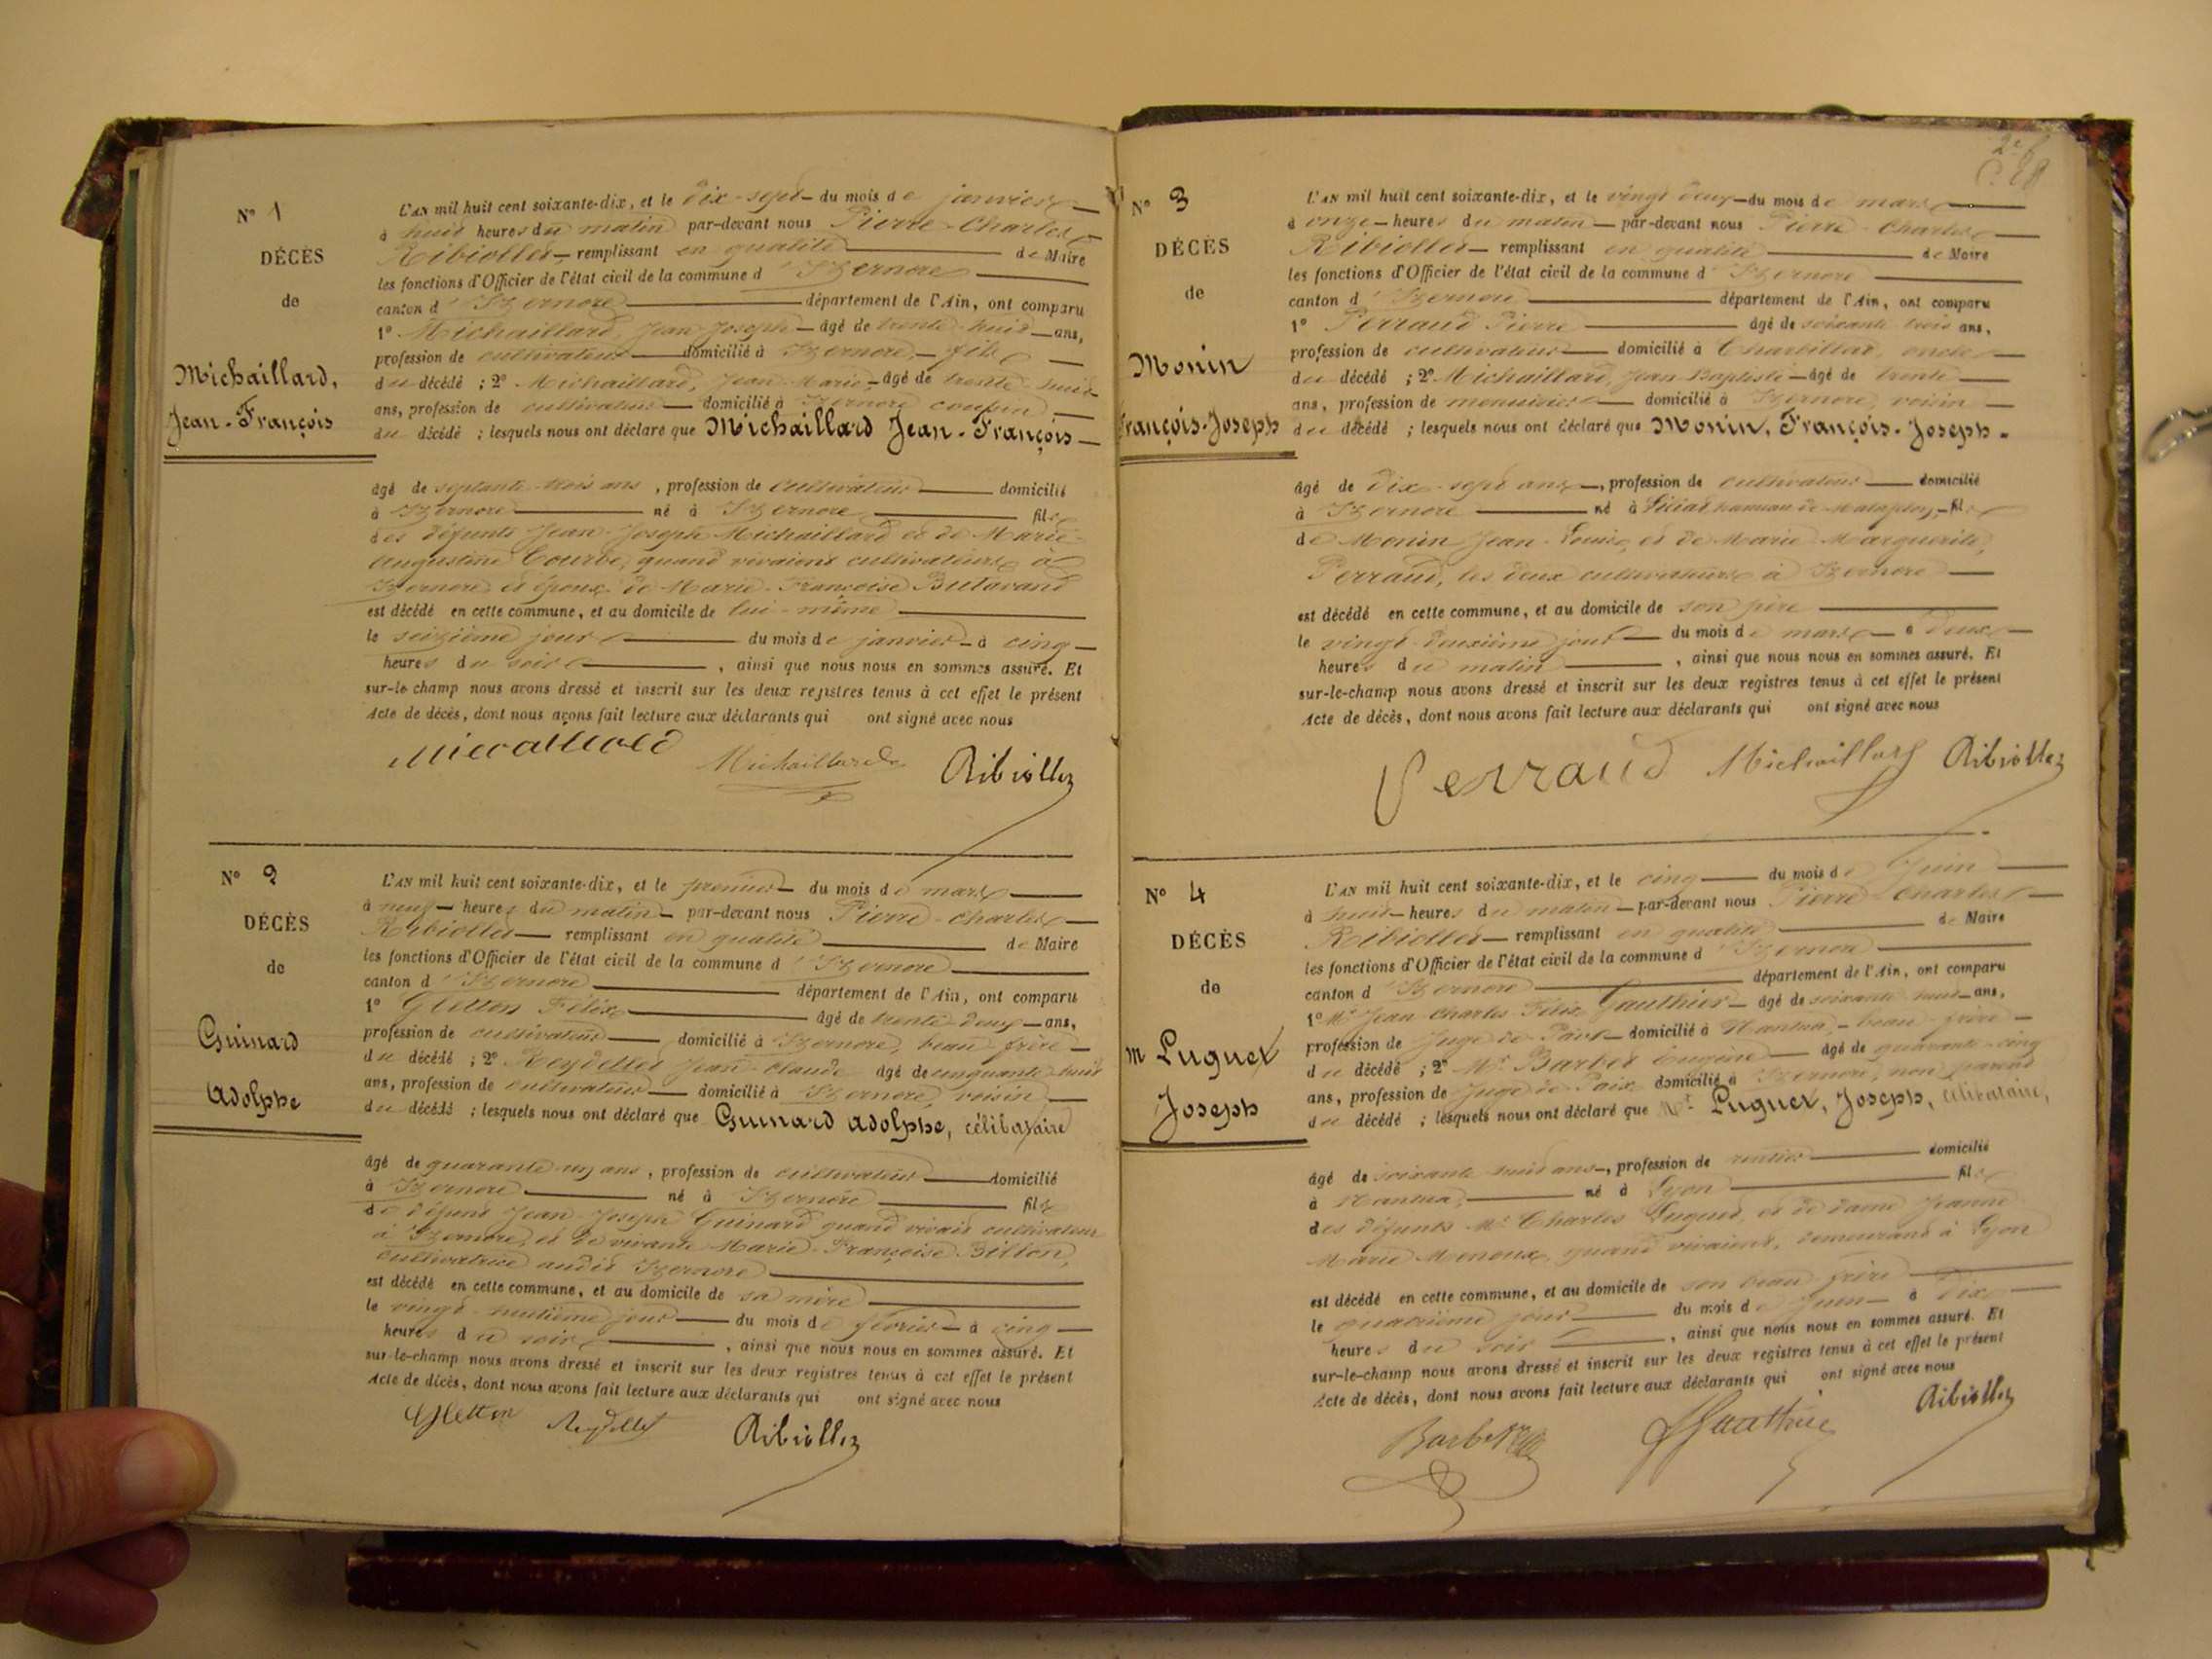 N° 1
DÉCÈS
de
Michaillard,
Jean-François
L'AN mil huit cent soixante-dix, et le dix-sept du mois de janvier
à huit heures du matin par-devant nous Pierre-Charles
Ribiollet remplissant en qualité de Maire
les fonctions d'Officier de l'état civil de la commune d'Izernore
canton d'Izernore département de l'Ain, ont comparu
1° Michaillard, Jean-Joseph âgé de trente-huit ans,
profession de cultivateur domicilié à Izernore, fils
du décédé ; 2° Michaillard, Jean-Marie âgé de trente-huit
ans, profession de cultivateur domicilié à Izernore cousin
du décédé ; lesquels nous ont déclaré que Michaillard Jean-François
âgé de septante-trois ans, profession de cultivateur domicilié
à Izernore né à Izernore fils
des défunts Jean-Joseph Michaillard et de Marie-
Augustine Courbe, quand vivaient cultivateurs à
Izernore et époux de Marie-Françoise Butavand
est décédé en cette commune, et au domicile de lui-même
le seizième jour du mois de janvier à cinq
heures du soir, ainsi que nous nous en sommes assuré. Et
sur-le-champ nous avons dressé et inscrit sur les deux registres tenus à cet effet le présent
Acte de décès, dont nous avons fait lecture aux déclarants qui ont signé avec nous
Michaillard Ribiollet
N° 2
DÉCÈS
de
Guinard
Adolphe
L'AN mil huit cent soixante-dix, et le premier du mois de mars
à neuf heures du matin par-devant nous Pierre-Charles
Ribiollet remplissant en qualité de Maire
les fonctions d'Officier de l'état civil de la commune d'Izernore
canton d'Izernore département de l'Ain, ont comparu
1° Gletton Félix âgé de trente-deux ans,
profession de cultivateur domicilié à Izernore, beau-frère
du décédé ; 2° Reydellet Jean-Claude âgé de cinquante-huit
ans, profession de cultivateur domicilié à Izernore, voisin
du décédé ; lesquels nous ont déclaré que Guinard Adolphe, célibataire
âgé de quarante-un ans, profession de cultivateur domicilié
à Izernore né à Izernore fils
de défunt Jean-Joseph Guinard quand vivait cultivateur
à Izernore, et de vivante Marie-Françoise Billon,
cultivatrice audit Izernore
est décédé en cette commune, et au domicile de sa mère
le vingt-huitième jour du mois de février à cinq
heures du soir, ainsi que nous nous en sommes assuré. Et
sur-le-champ nous avons dressé et inscrit sur les deux registres tenus à cet effet le présent
Acte de décès, dont nous avons fait lecture aux déclarants qui ont signé avec nous
Gletton Reydellet Ribiollet
N° 3
DÉCÈS
de
Monin
François-Joseph
L'AN mil huit cent soixante-dix, et le vingt-deux du mois de mars
à onze heures du matin par-devant nous Pierre-Charles
Ribiollet remplissant en qualité de Maire
les fonctions d'Officier de l'état civil de la commune d'Izernore
canton d'Izernore département de l'Ain, ont comparu
1° Perraud Pierre âgé de soixante-trois ans,
profession de cultivateur domicilié à Charbillat, oncle
du décédé ; 2° Michaillard, Jean-Baptiste âgé de trente
ans, profession de menuisier domicilié à Izernore, voisin
du décédé ; lesquels nous ont déclaré que Monin, François-Joseph
âgé de dix-sept ans, profession de cultivateur domicilié
à Izernore né à hameau de fils
de Monin Jean-Louis, et de Marie-Marguerite
Perraud, les deux cultivateurs à Izernore
est décédé en cette commune, et au domicile de son père
le vingt-deuxième jour du mois de mars à deux
heures du matin, ainsi que nous nous en sommes assuré. Et
sur-le-champ nous avons dressé et inscrit sur les deux registres tenus à cet effet le présent
Acte de décès, dont nous avons fait lecture aux déclarants qui ont signé avec nous
Perraud Michaillard Ribiollet
N° 4
DÉCÈS
de
M Puguet
Joseph
L'AN mil huit cent soixante-dix, et le cinq du mois de Juin
à huit heures du matin par-devant nous Pierre-Charles
Ribiollet remplissant en qualité de Maire
les fonctions d'Officier de l'état civil de la commune d'Izernore
canton d'Izernore département de l'Ain, ont comparu
1° Mr Jean-Charles-Félix Gauthier âgé de soixante-huit ans,
profession de Juge de Paix domicilié à Nantua, beau-frère
du décédé ; 2° Mr Barbet Eugène âgé de quarante-cinq
ans, profession de Juge de Paix domicilié à Izernore, non parent
du décédé ; lesquels nous ont déclaré que Mr Puguet, Joseph, célibataire,
âgé de soixante-huit ans, profession de rentier domicilié
à Nantua, né à Lyon fils
des défunts Mr Charles Puguet, et de dame Jeanne
Marie Menoux, quand vivaient, demeurant à Lyon
est décédé en cette commune, et au domicile de son beau-frère
le quatrième jour du mois de Juin à dix
heures du soir, ainsi que nous nous en sommes assuré. Et
sur-le-champ nous avons dressé et inscrit sur les deux registres tenus à cet effet le présent
Acte de décès, dont nous avons fait lecture aux déclarants qui ont signé avec nous
Barbet Gauthier Ribiollet